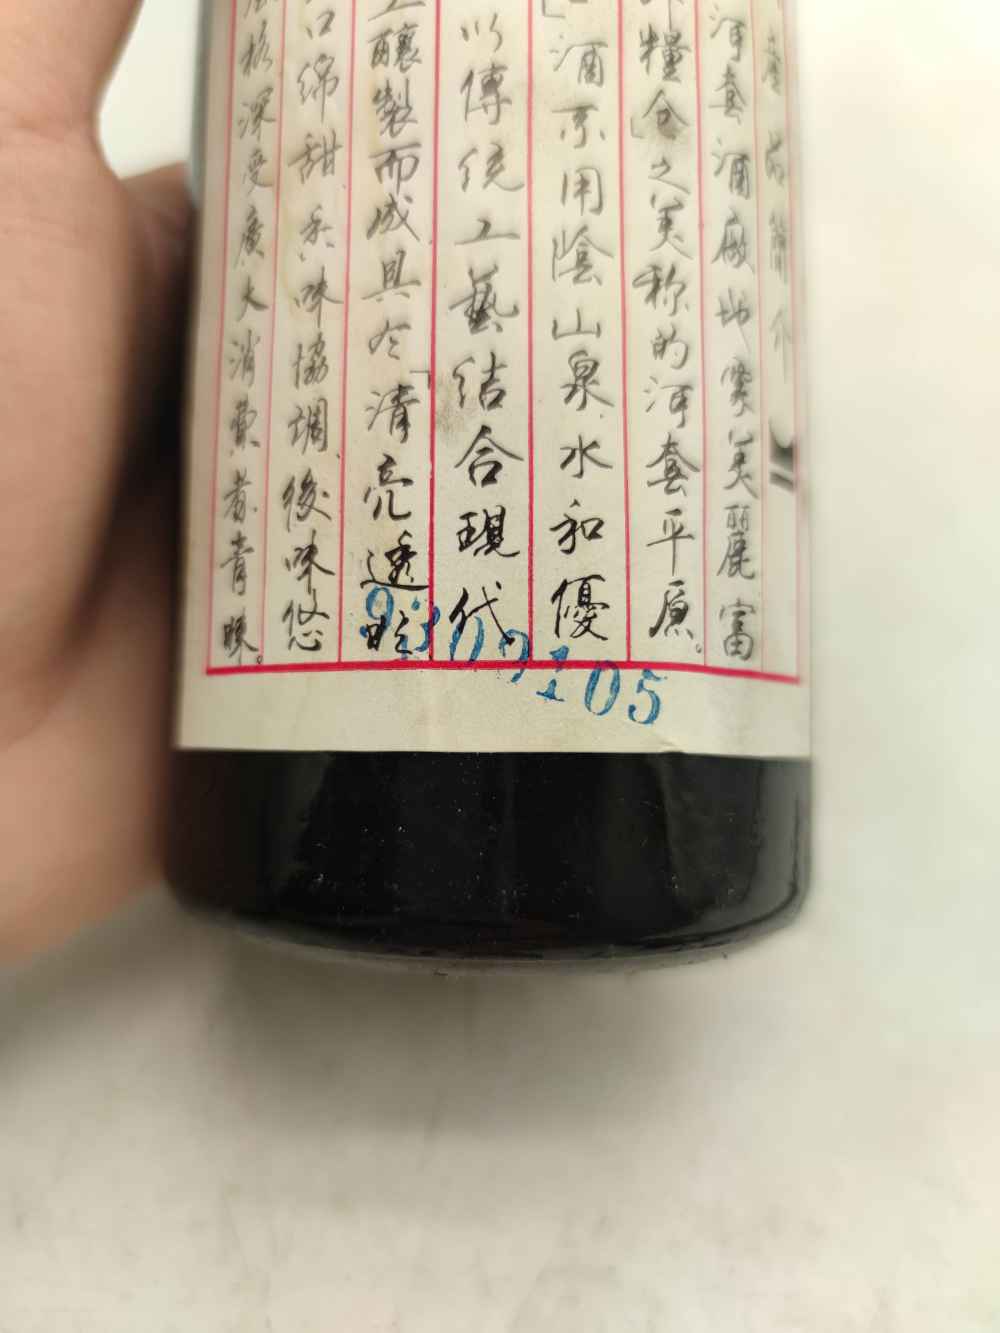 品簡介
河套酒廠地處美麗富
糧倉之美称的河套平原。
酒系用陰山泉水和優
以傳统工藝结合現代
釀製而成具有「清亮透明
口綿甜香味協調、後味悠
格深受廣大消費者青睐。
99109105